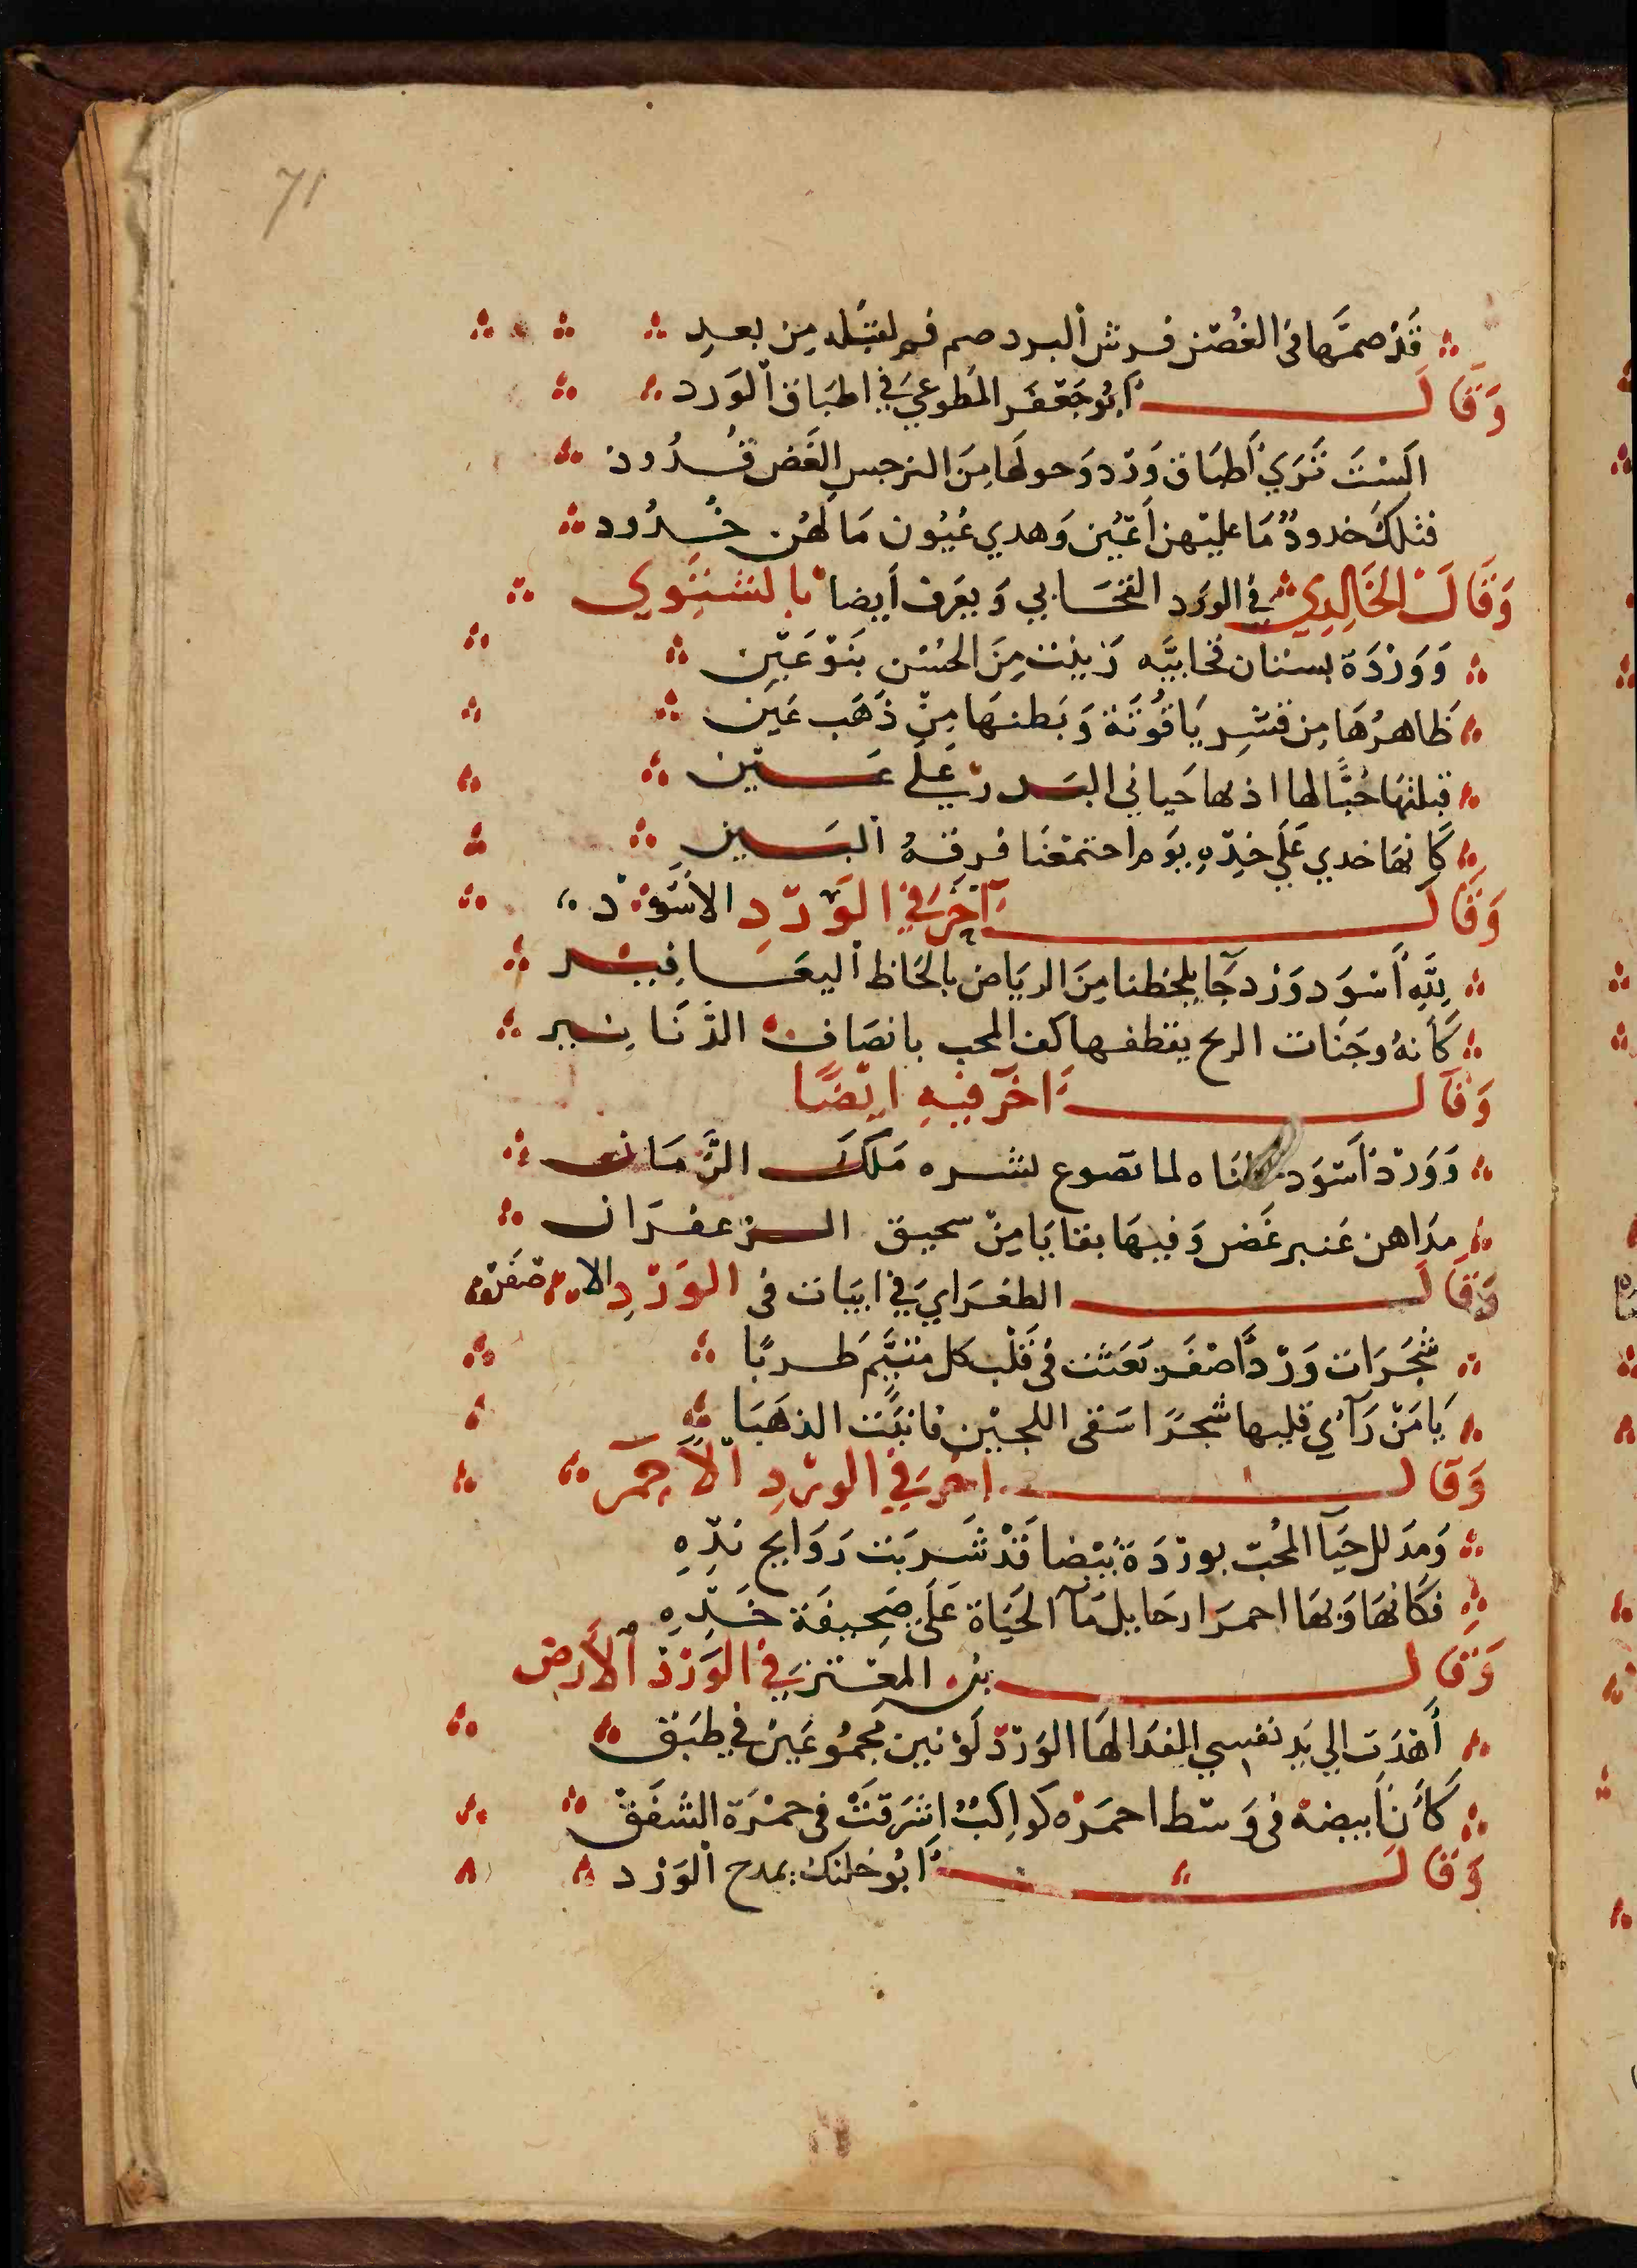 71
قَدْ ضمَّها فى الغُصْن قرش البرد ضم فم لقبلة مِن بعيدِ
وَقَالَ أبُو جَعْفَر المطوعي في اطبَاق الوَرد
الَسْتَ تَرَي أطبَاق وَرْد وَحولهَا مِنَ النرجس الغَض قُدُود
فتلكَ خدودٌ مَا عليْهن أعْيُن وَهدي عُيُون مَا لهُن خُدُود
وَقَالَ الخَالِدِي في الورد القحَابي وَيعَرف أيضا بالشتَوِي
وَوَرْدَة بستان قحابيَّه زينت مِنَ الحُسْن بنَوْعَيْن
ظَاهرُهَا مِن قشرِ يَاقُوتَة وَبَطنهَا مِنْ ذَهَب عَيْن
قبلتهَا حُبًّا لها اذ بها حَياني البدر عَلَى عَيْن
كَانهَا خدي عَلَي خدّهِ يوَم اجتمَعْنَا فرقهُ البَيْنِ
وَقَالَ آخَر في الوَرْدِ الأسْوَد
لِلَّهِ أَسْوَد وَرْد جَآ يلحظنا مِنَ الريَاض بالحَاظ اليعَافِيْر
كَأنهُ وجَنَات الريح يقطفها كف المحب بانصَاف الدّنَانِير
وَقَالَ آخر فيهِ ايْضًا
وَوَرْد أسْوَد لما تضوع نشره مَلَكَ الزَّمَان
مدَاهن عَنبر غَض وَفيهَا بقايَا مِنْ سحيق الزعفرَان
وَقَالَ الطغرَاي في ابيَات فى الوَرْدِ الاصفَر
شَجَرَات وَرْدٍ اصْفَر بَعَثت فى قَلْب كل مُتيَّم طربًا
يَا مَنْ رَآي قلبها شجرًا سَقى اللجيْن فانبَت الذهَبَا
وَقَالَ آخر في الورْدِ الأحمَر
وَمدَلل حَيَّا المُحبّ بورْدَة بَيْضا قَدْ شَربَت رَوَايح ندّهِ
فكَانهَا وَبهَا احمرَار حَايل مَآ الحَيَاة عَلَى صَحيفَة خَدّهِ
وَقَالَ بن المعْتز في الوَرْد الأرض
أَهْدَت الي يَد نفسي الفدَا لهَا الوَرْد لَوْنين مَجمُوعَيْن في طبَق
كَأنَّ أبيضهُ فى وَسْط احمَرْه كوَاكِبٌ اشرَقَتْ فى حمْرَة الشفَقْ
وَقَالَ أبُو خلنك يمدح الوَرْد